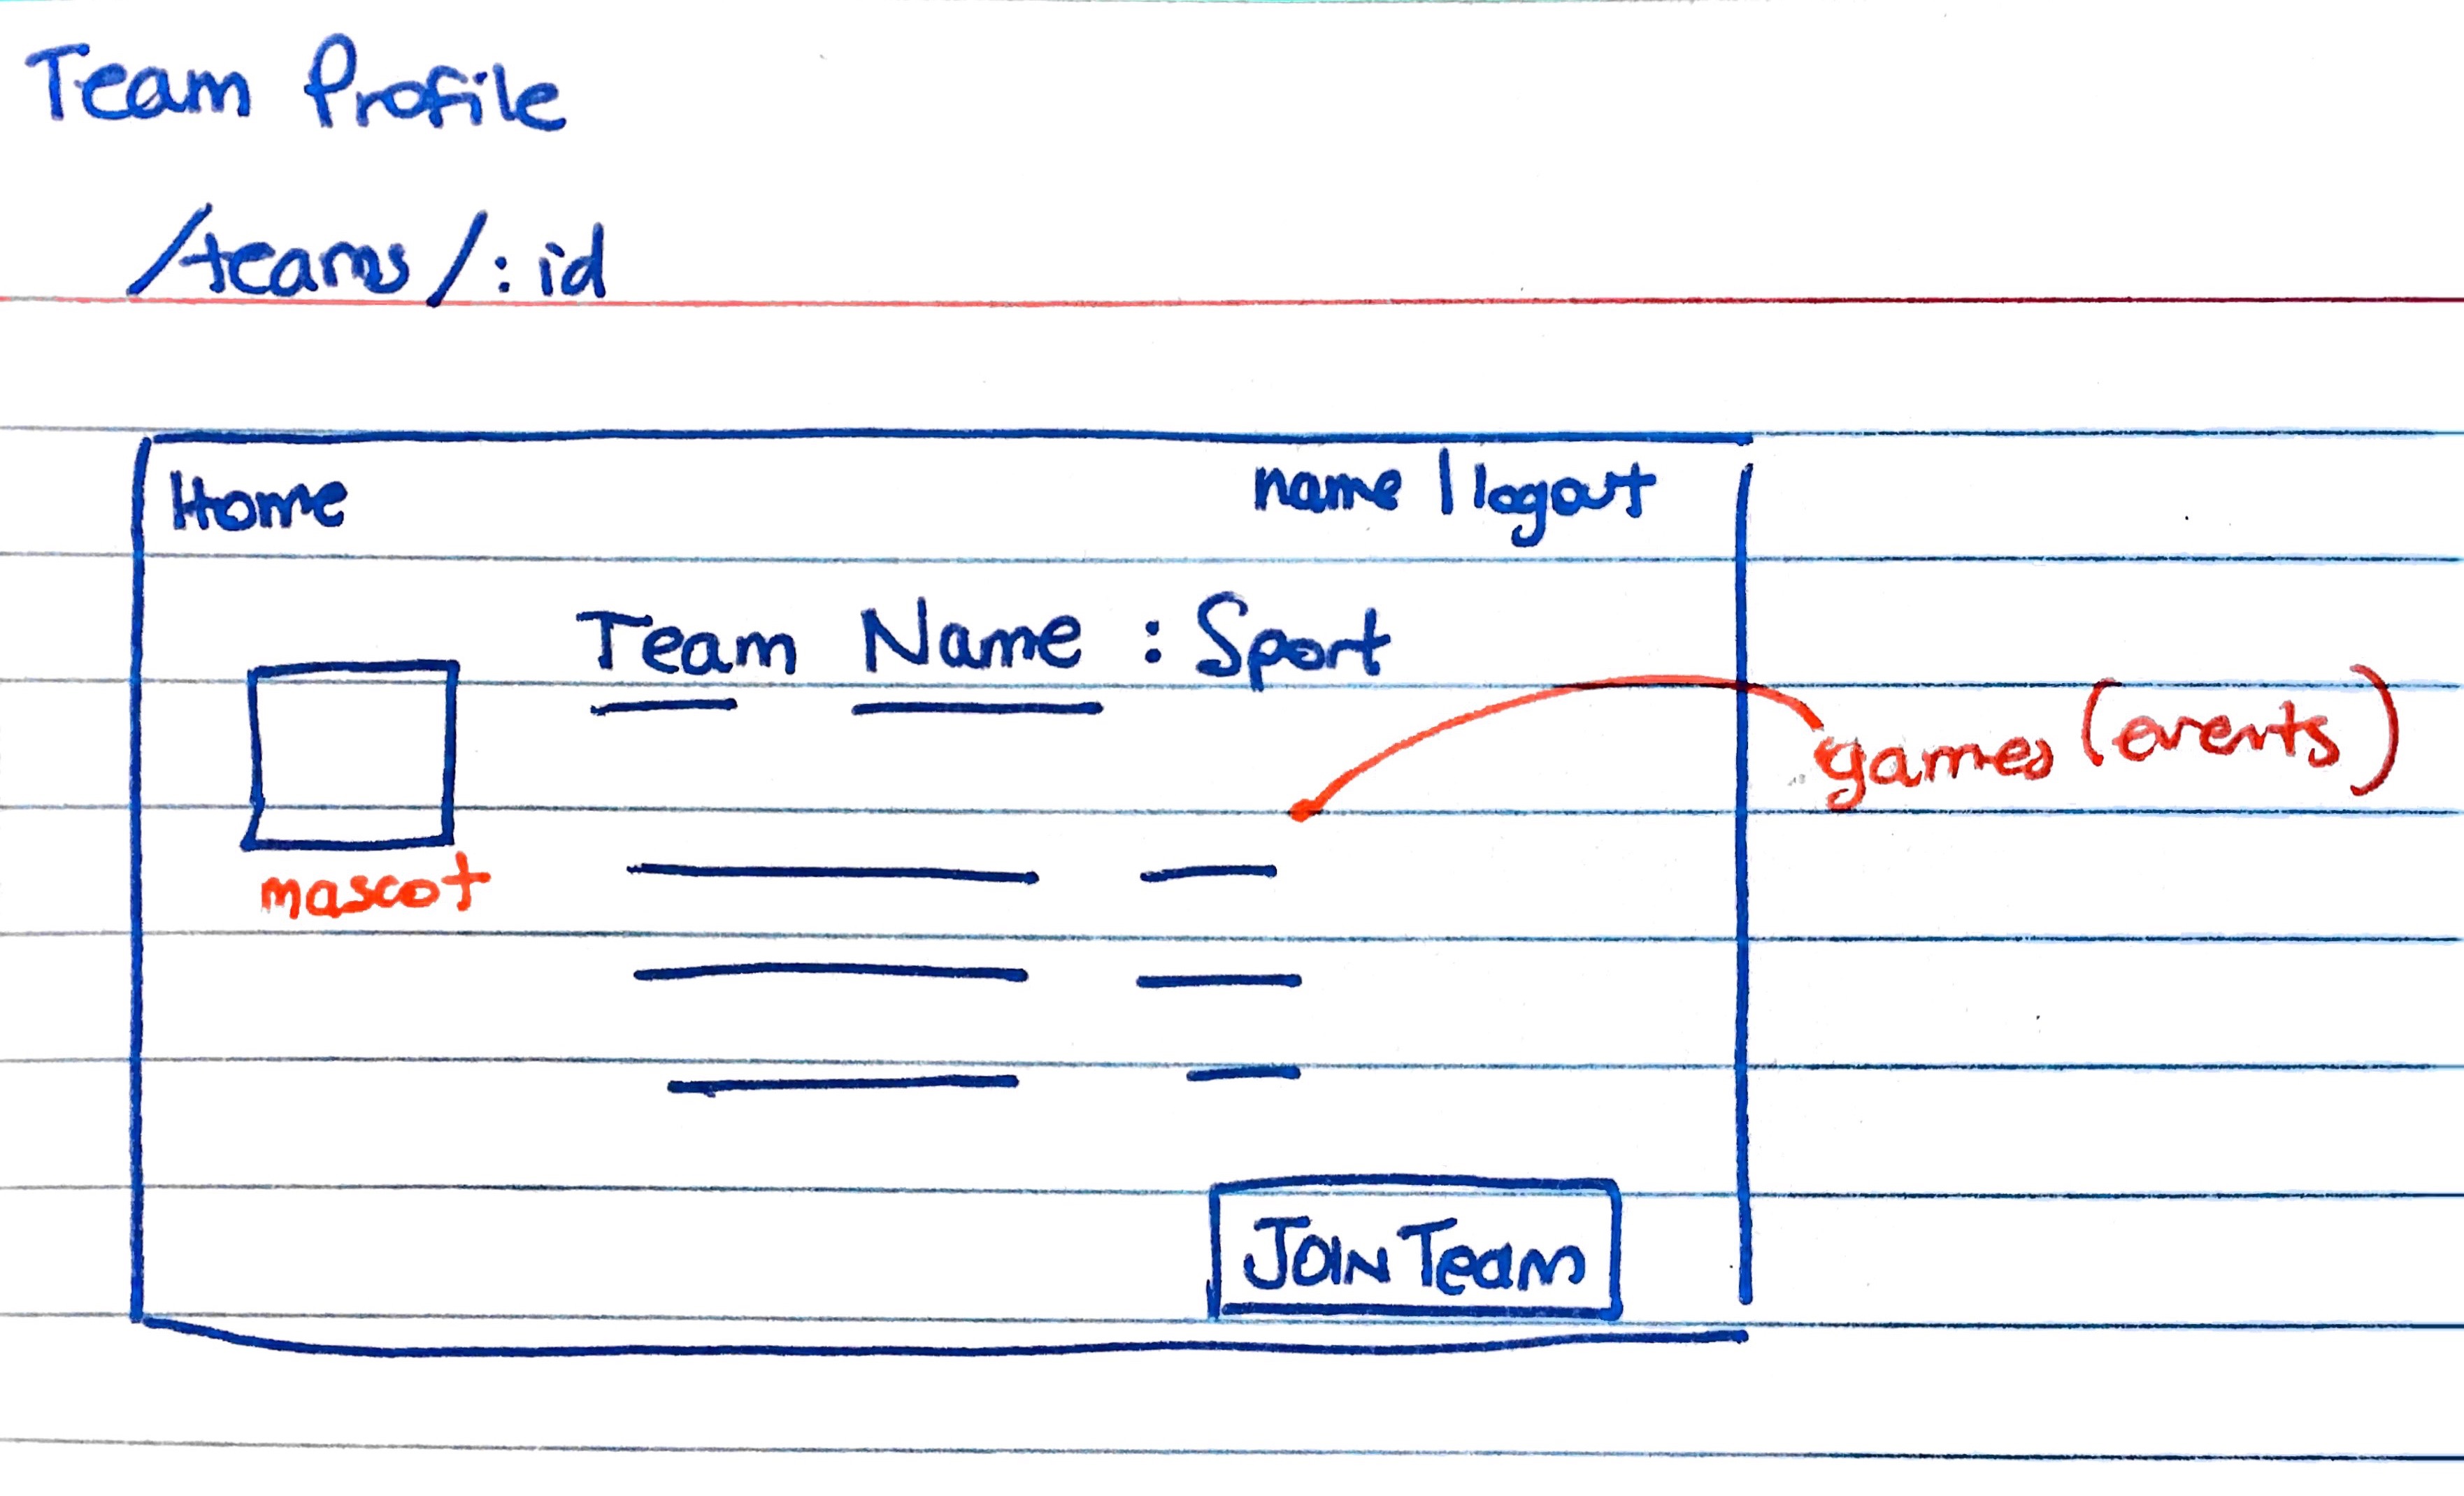 Team Profile
/teams/:id
Home name | logout
Team Name : Sport
games (events)
mascot
JOIN Team